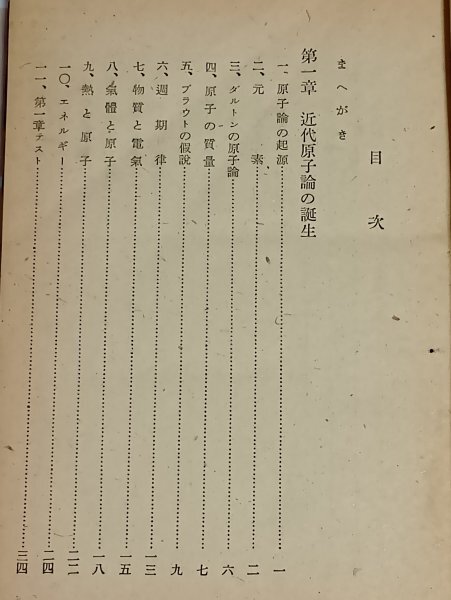 目次
まへがき
第一章 近代原子論の誕生
一、原子論の起源……一
二、元素……二
三、ダルトンの原子論……六
四、原子の質量……七
五、プラウトの假說……九
六、週期律……一三
七、物質と電氣……一五
八、氣體と原子……一八
九、熱と原子……二二
一〇、エネルギー……二四
一一、第一章テスト……三四